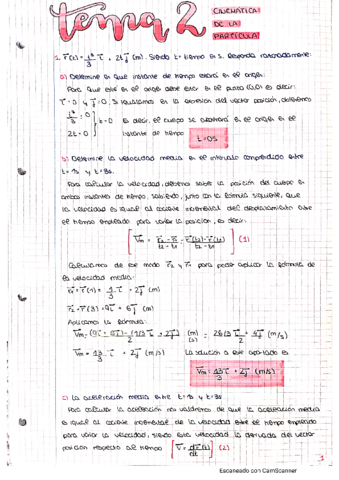 tema 2
CINEMÁTICA
DE LA
PARTÍCULA
1. r(t) = t³/3 i + 2t j (m). Siendo t tiempo en s. Responda razonadamente:
a) Determine en qué instante de tiempo estará en el origen:
Para que esté en el origen debe estar en el punto (0,0) es decir:
i = 0 y j = 0; si igualamos en la expresión del vector posición, obtenemos
t³/3 = 0
2t = 0
t = 0 es decir, el cuerpo se encontrará en el origen en el
instante de tiempo t = 0s
b) Determine la velocidad media en el intervalo comprendido entre
t = 1s y t = 3s.
Para calcular la velocidad, debemos saber la posición del cuerpo en
ambos instantes de tiempo, sabiendo, junto con la fórmula siguiente, que
la velocidad es igual al cociente incremental del desplazamiento entre
el tiempo empleado para variar la posición, es decir:
[ Vm = r2 - r1 / t2 - t1 = r(t2) - r(t1) / t2 - t1 ] (1)
Calculamos de ese modo r2 y r1 para poder aplicar la fórmula de
la velocidad media:
r1 = r(1) = 1/3 i + 2j (m)
r2 = r(3) = 9i + 6j (m)
Aplicamos la fórmula:
Vm = (9i + 6j) - (1/3 i + 2j) (m)/(s) = 26/3 i + 4j / 2 (m/s)
Vm = 13/3 i + 2j (m/s) La solución a este apartado es
Vm = 13/3 i + 2j (m/s)
c) La aceleración media entre t = 1s y t = 3s
Para calcular la aceleración nos valdremos de que la aceleración media
es igual al cociente incremental, de la velocidad entre el tiempo empleado
para variar la velocidad, siendo esta velocidad la derivada del vector
posición respecto al tiempo [ V = dr/dt ] (2)
1
Escaneado con CamScanner